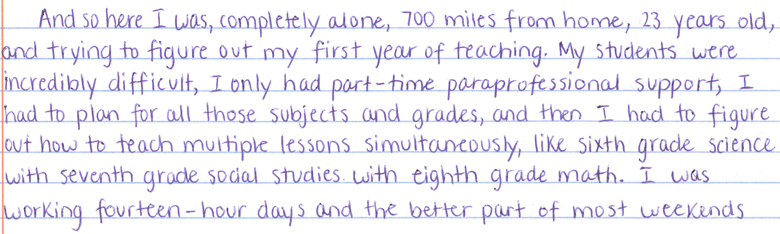 And so here I was, completely alone, 700 miles from home, 23 years old,
and trying to figure out my first year of teaching. My students were
incredibly difficult, I only had part-time paraprofessional support, I
had to plan for all those subjects and grades, and then I had to figure
out how to teach multiple lessons simultaneously, like sixth grade science
with seventh grade social studies with eighth grade math. I was
working fourteen-hour days and the better part of most weekends